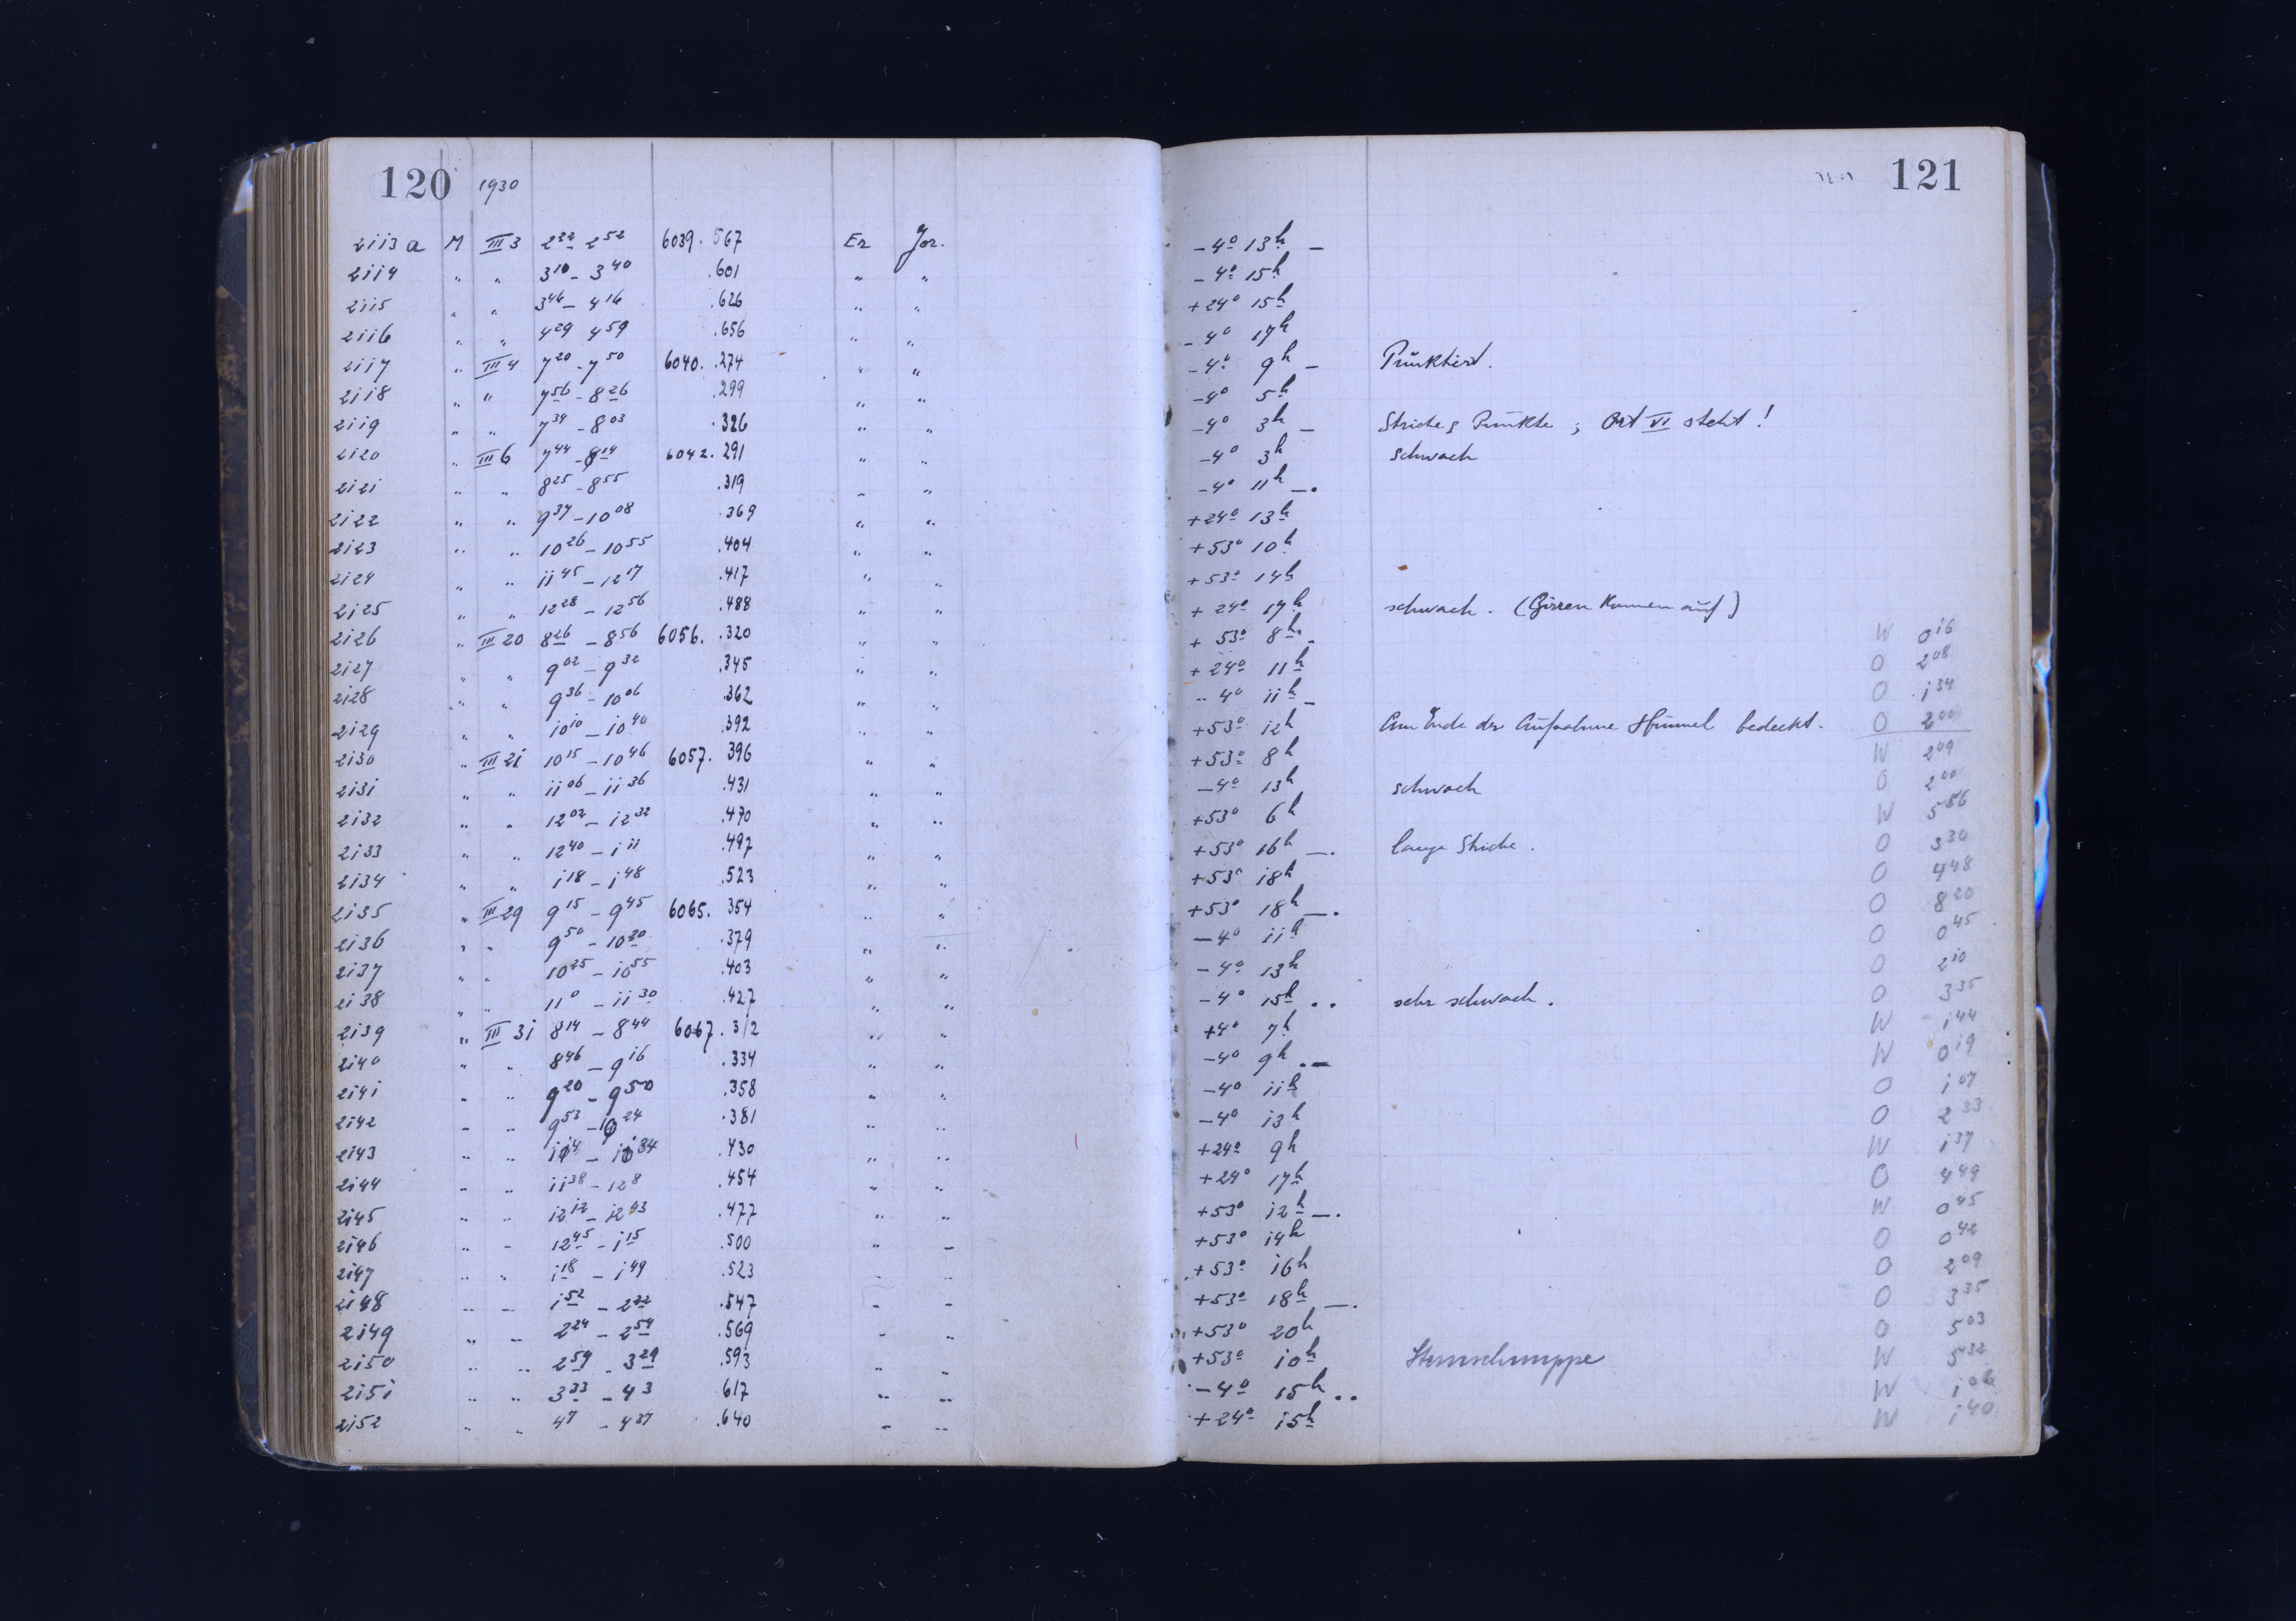 120 1930 121
2113 a M III 3 2 32 2 52 6039. 567 Er Jor. -4° 13h –
2114 " " 3 10 - 3 40 .601 " " -4° 15h
2115 " " 3 46 - 4 16 .626 " " +24° 15h
2116 " " 4 29 4 59 .656 " " -4° 17h
2117 " III 4 7 20 - 7 50 6040. .274 " " -4° 9h – Punktiert.
2118 " " 7 56 - 8 26 .299 " " -4° 5h
2119 " " 7 34 - 8 03 .326 " " -4° 3h – Striche & Punkte ; Ort VI steht !
2120 " III 6 7 44 - 8 14 6042. 291 " " -4° 3h schwach
2121 " " 8 25 - 8 55 .319 " " -4° 11h –.
2122 " " 9 37 - 10 08 .369 " " +24° 13h
2123 " " 10 26 - 10 55 .404 " " +53° 10h
2124 " " 11 45 - 12 17 .417 " " +53° 14h
2125 " " 12 28 - 12 56 .488 " " +24° 17h schwach. (Cirren kamen auf)
2126 " III 20 8 26 - 8 56 6056. .320 " " +53° 8h – W 0 16
2127 " " 9 02 - 9 32 .345 " " +24° 11h O 2 08
2128 " " 9 36 - 10 06 .362 " " -4° 11h – O 1 34
2129 " " 10 10 - 10 40 .392 " " +53° 12h Am Ende der Aufnahme Himmel bedeckt. O 2 00
2130 " III 21 10 15 - 10 46 6057. 396 " " +53° 8h W 2 09
2131 " " 11 06 - 11 36 .431 " " -4° 13h schwach O 2 00
2132 " " 12 02 - 12 32 .470 " " +53° 6h W 5 56
2133 " " 12 40 - 1 11 .497 " " +53° 16h –. lange Striche. O 3 30
2134 " " 1 18 - 1 48 .523 " " +53° 18h O 4 48
2135 " III 29 9 15 - 9 45 6065. 354 " " +53° 18h –. O 8 20
2136 " " 9 50 - 10 20 .379 " " -4° 11h O 0 45
2137 " " 10 25 - 10 55 .403 " " -4° 13h O 2 10
2138 " " 11 0 - 11 30 .427 " " -4° 15h .. sehr schwach. O 3 35
2139 " III 31 8 14 - 8 44 6067. 312 " " +4° 7h W 1 44
2140 " " 8 46 - 9 16 .334 " " -4° 9h .– W 0 19
2141 " " 9 20 - 9 50 .358 " " -4° 11h O 1 07
2142 " " 9 53 - 10 24 .381 " " -4° 13h O 2 33
2143 " " .430 " " +24° 9h W 1 37
2144 " " 11 38 - 12 8 .454 " " +24° 17h O 4 49
2145 " " 12 12 - 12 43 .477 " " +53° 12h –. W 0 45
2146 " " 12 45 - 1 15 .500 " " +53° 14h O 0 42
2147 " " 1 18 - 1 49 .523 " " +53° 16h O 2 09
2148 " " 1 52 - 2 22 .547 " " +53° 18h –. O 3 35
2149 " " 2 24 - 2 54 .569 " " +53° 20h O 5 03
2150 " " 2 59 - 3 29 .593 " " +53° 10h Sternschnuppe W 5 32
2151 " " 3 33 - 4 3 617 " " -4° 15h .. W
2152 " " 4 7 - 4 37 .640 " " +24° 15h W 1 40